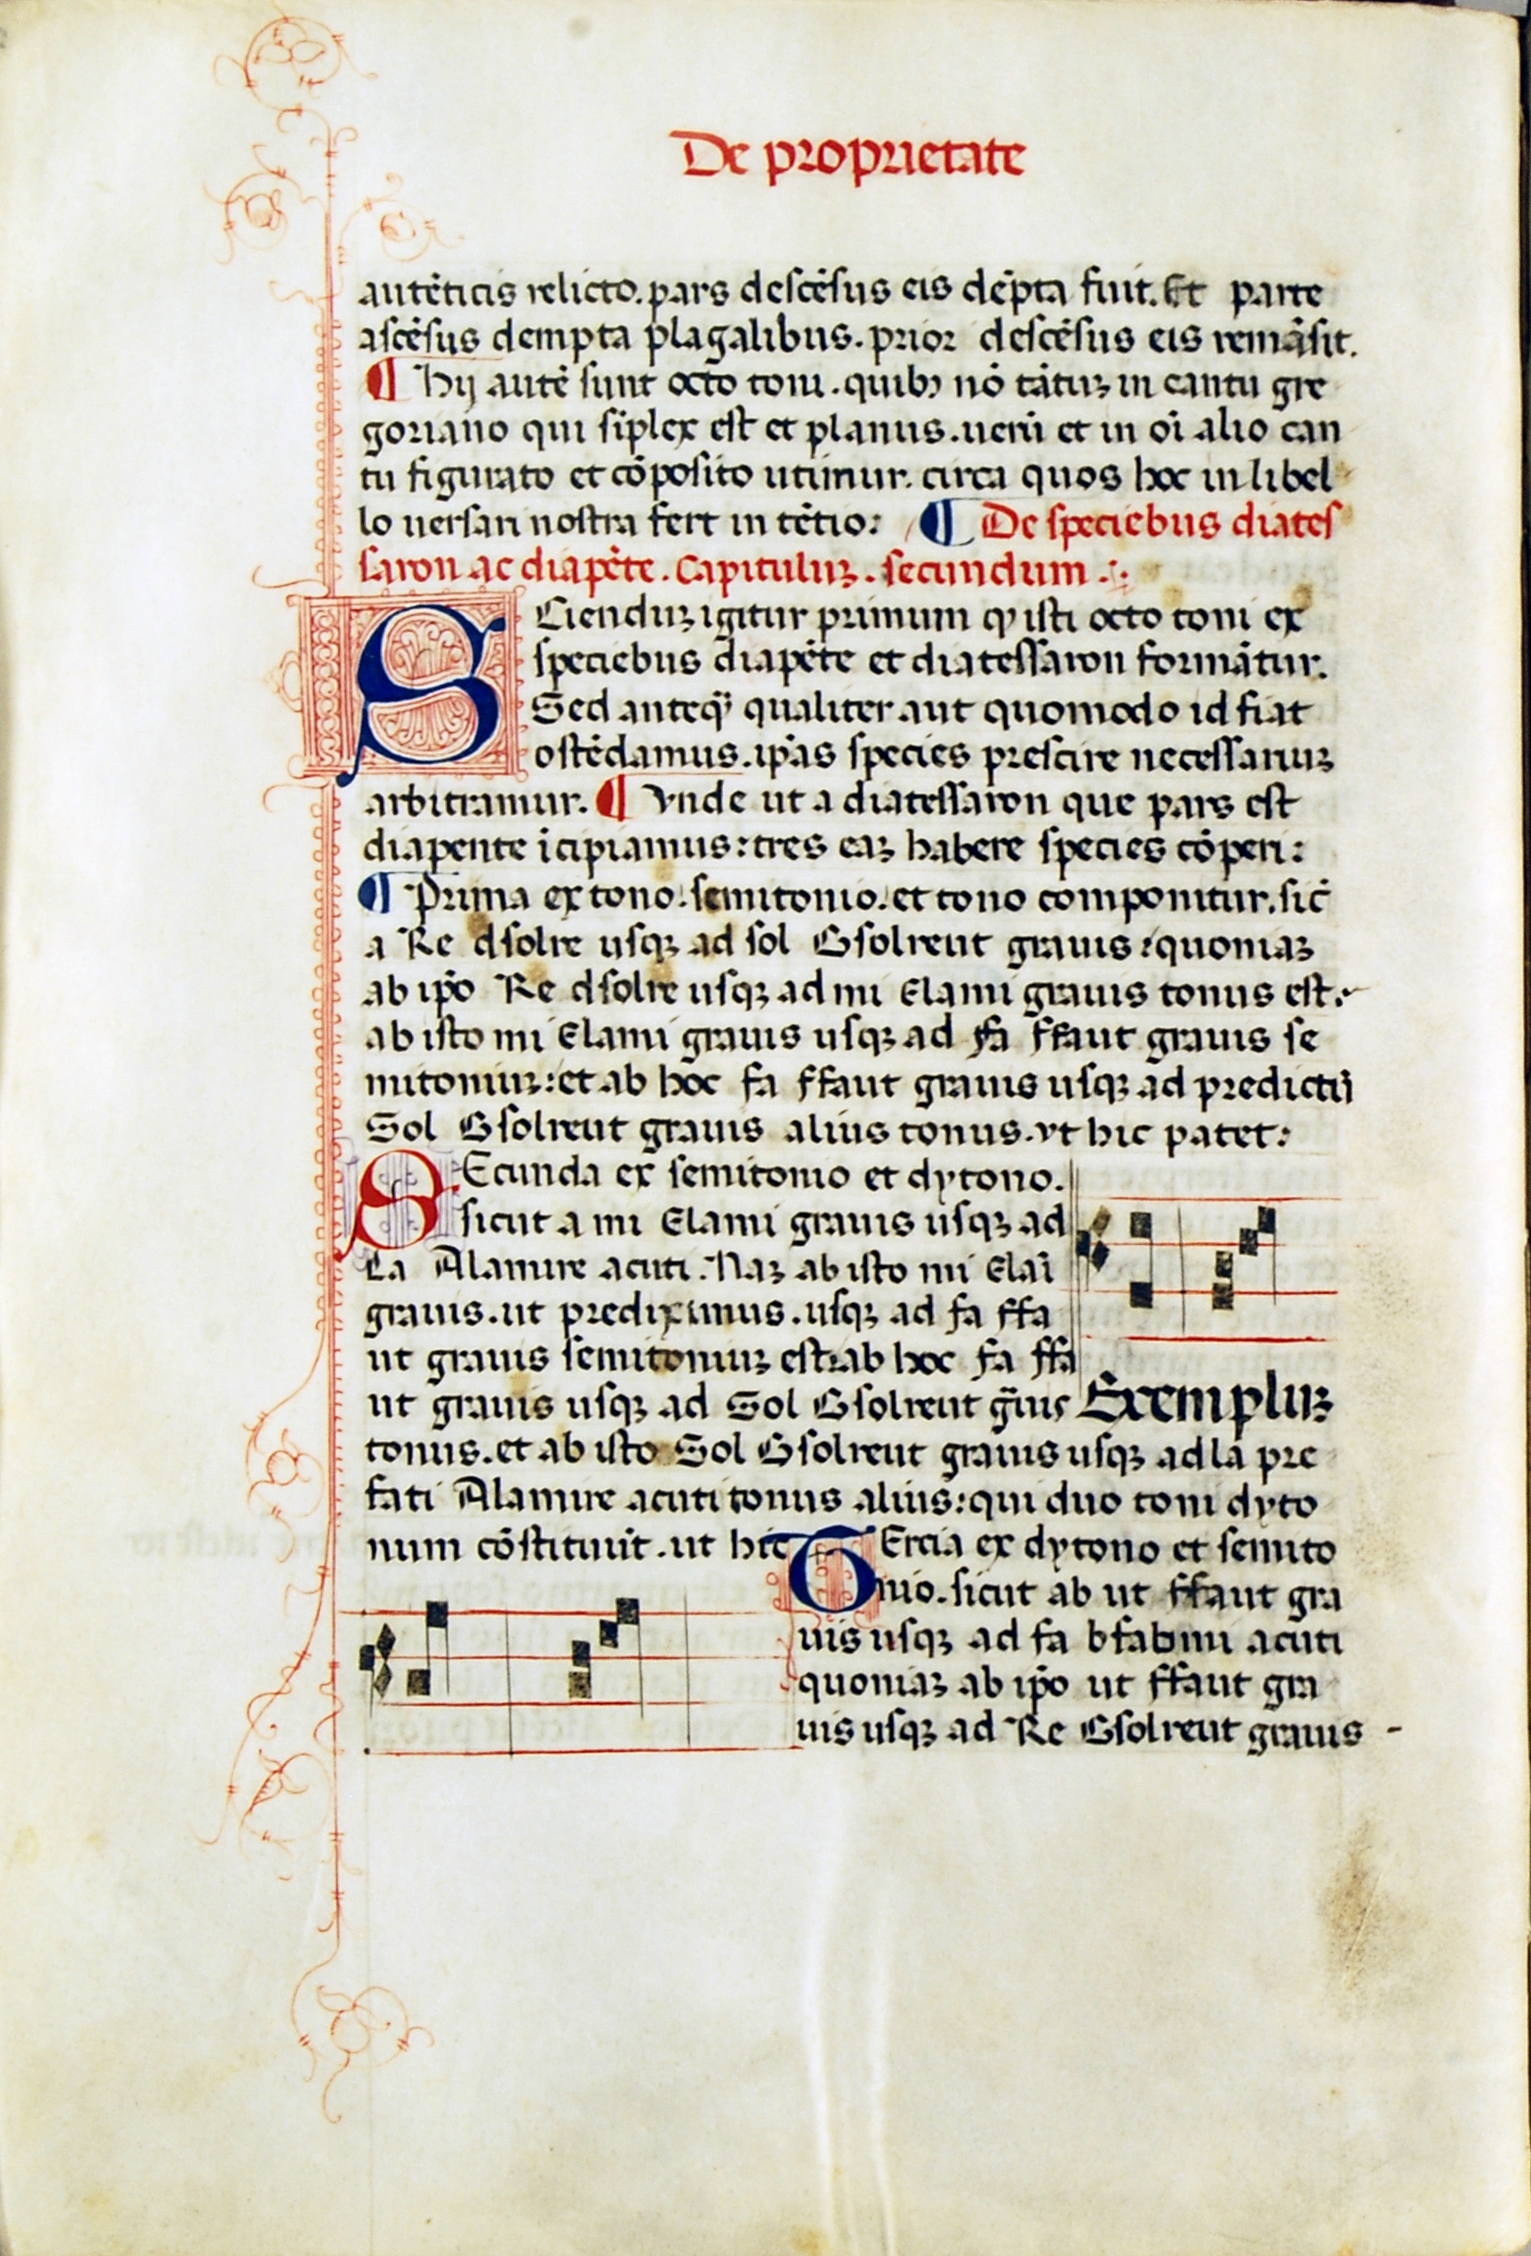 De proprietate
autēticis relicto. pars descēsus eis dēpta fuit. Et parte
ascēsus dempta plagalibus. prior descēsus eis remāsit.
¶ Hij autē sunt octo toni. quibꝫ nō tātuꝫ in cantu gre
goriano qui sīplex est et planus. uerū et in oī alio can
tu figurato et cōposito utimur. circa quos hoc in libel
lo uersari nostra fert in tētio: ¶ De speciebus diates
saron ac diapēte. Capituluꝫ. secundum.
SCienduꝫ igitur primum ꝙ isti octo toni ex
speciebus diapēte et diatessaron formātur.
Sed anteq̄ qualiter aut quomodo id fiat
ostēdamus. ip̄as species prescire necessariuꝫ
arbitramur. ¶ Vnde ut a diatessaron que pars est
diapente īcipiamus: tres eaꝫ habere species cōperi:
¶ Prima ex tono. semitonio. et tono componitur. sic̄
a Re dsolre usqꝫ ad sol Gsolreut grauis: quoniaꝫ
ab ip̄o Re dsolre usqꝫ ad mi Elami grauis tonus est.
ab isto mi Elami grauis usqꝫ ad fa ffaut grauis se
mitoniuꝫ: et ab hoc fa ffaut grauis usqꝫ ad predictū
Sol Gsolreut grauis alius tonus. vt hic patet:
SEcunda ex semitonio et dytono.
sicut a mi Elami grauis usqꝫ ad
La Alamire acuti. Naꝫ ab isto mi Elaī
grauis. ut prediximus. usqꝫ ad fa ffa
ut grauis semitoniuꝫ est: ab hoc fa ffa
ut grauis usqꝫ ad Sol Gsolreut ḡuis Exempluꝫ
tonus. et ab isto Sol Gsolreut grauis usqꝫ ad la pre
fati Alamire acuti tonus alius: qui duo toni dyto
num cōstituūt. ut hic
TErcia ex dytono et semito
nio. sicut ab ut ffaut gra
uis usqꝫ ad fa bfabmi acuti
quoniaꝫ ab ip̄o ut ffaut gra
uis usqꝫ ad Re Gsolreut grauis -